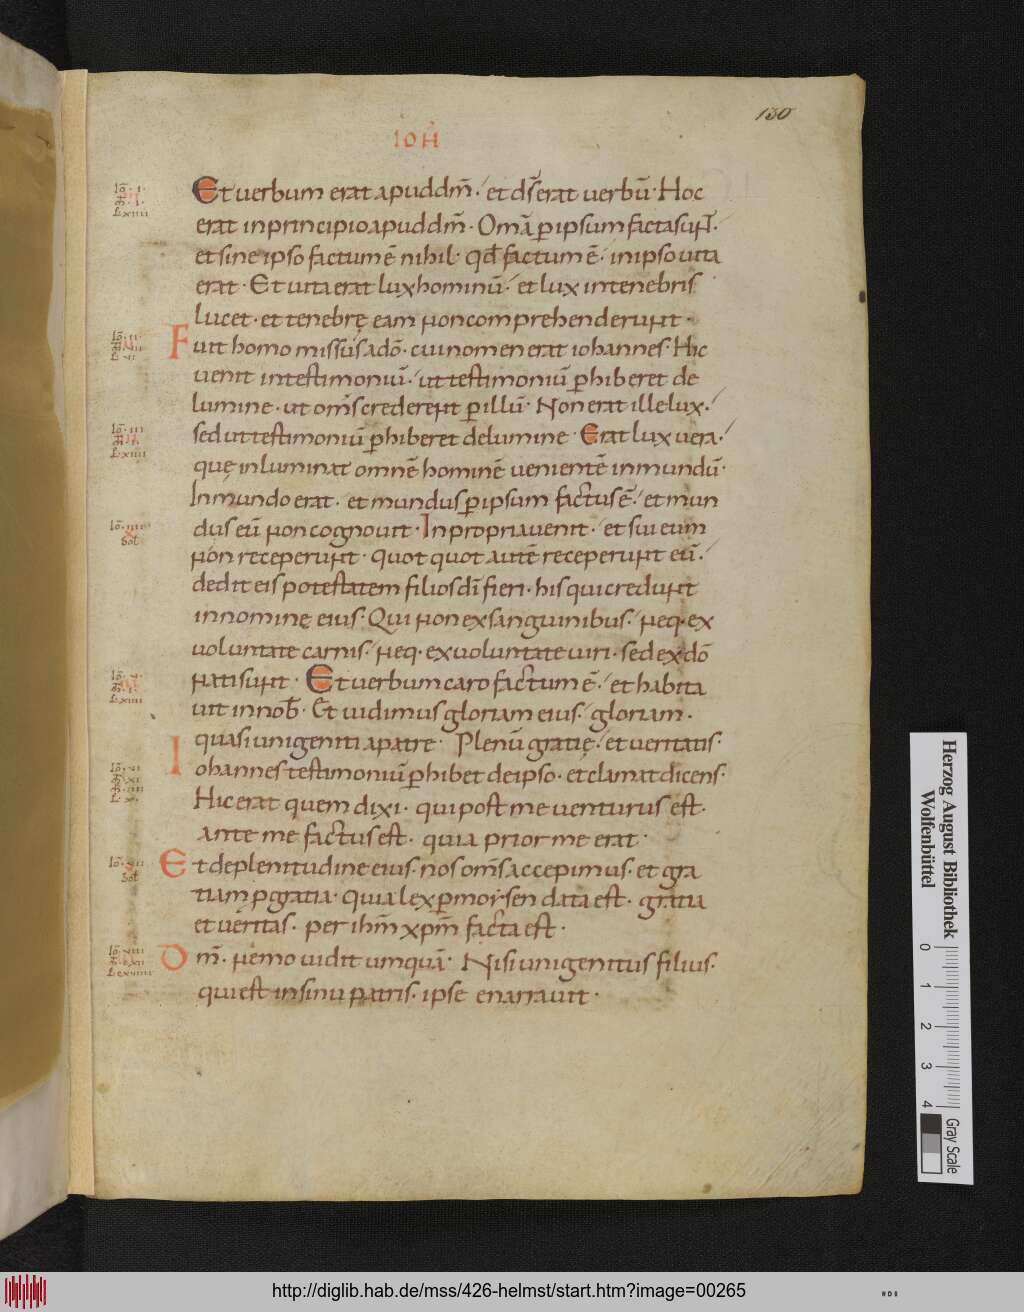 130
IOH̄
Et uerbum erat apud dm̄. et ds̄ erat uerbū. Hoc
erat in principio apud dm̄. Omā ꝑ ipsum facta suɴt̄.
et sine ipso factum ē nihil. qđ factum ē. in ipso uita
erat. Et uita erat lux hominū. et lux in tenebris
lucet. et tenebrę eam non comprehenderunt.
Fuit homo missus a dō. cui nomen erat iohannes. Hic
uenit in testimoniū. ut testimoniū ꝑhiberet de
lumine. ut om̄s crederent ꝑ illū. Non erat ille lux.
sed ut testimoniū ꝑhiberet de lumine. Erat lux uera.
quę inluminat omnē hominē uenientē in mundū.
In mundo erat. et mundus ꝑ ipsum factus ē. et mun
dus eū non cognouit. In propria uenit. et sui eum
non receperunt. quot quot autē receperunt eū.
dedit eis potestatem filios dī fieri. his qui credunt
in nomine eius. Qui non ex sanguinibus. neq. ex
uoluntate carnis. neq. ex uoluntate uiri. sed ex dō
nati sunt. Et uerbum caro factum ē. et habita
uit in nob̄. Et uidimus gloriam eius. gloriam.
quasi unigeniti a patre. Plenū gratię. et ueritatis.
Iohannes testimoniū ꝑhibet de ipso. et clamat dicens.
Hic erat quem dixi. qui post me uenturus est.
ante me factus est. quia prior me erat.
Et de plenitudine eius. nos om̄s accepimus. et gra
tiam p gratia. quia lex ꝑ morsen data est. gratia
et ueritas. per ihm̄ xpm̄ facta est.
Dm̄. nemo uidit umquā. Nisi unigenitus filius.
qui est in sinu patris. ipse enarrauit.
Herzog August Bibliothek
Wolfenbüttel
0 1 2 3 4
Gray Scale
http://diglib.hab.de/mss/426-helmst/start.htm?image=00265